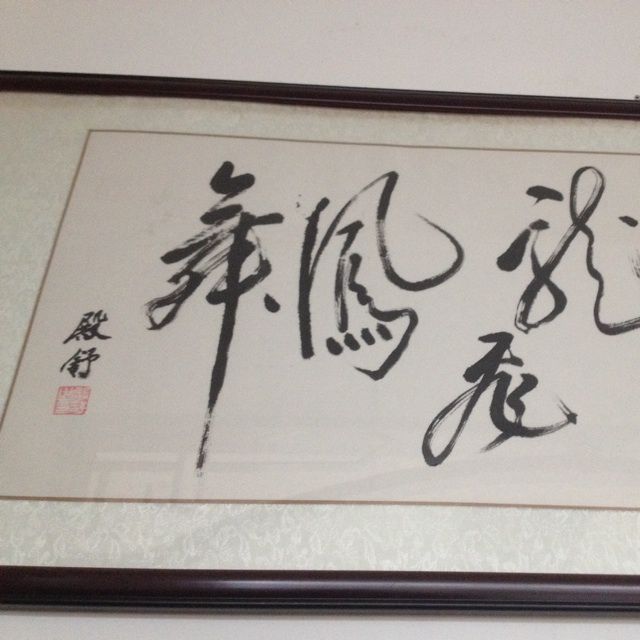 龍飛鳳舞
殿舒